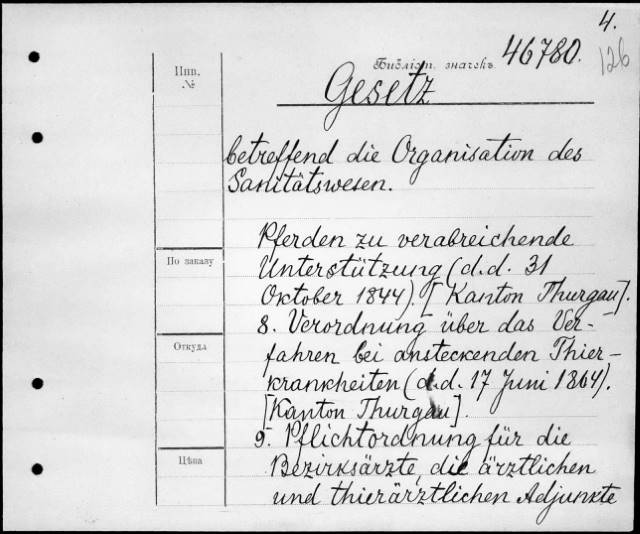 4.
126
Инв.
№
Библіот. значекъ 46780.
Gesetz
betreffend die Organisation des
Sanitätswesen.
Pferden zu verabreichende
По заказу
Unterstützung (d.d. 31
Oktober 1844). [Kanton Thurgau].
8. Verordnung über das Ver-
Откуда
fahren bei ansteckenden Thier-
krankheiten (d.d. 17 Juni 1864).
[Kanton Thurgau].
9. Pflichtordnung für die
Цѣна
Bezirksärzte, die ärztlichen
und thierärztlichen Adjunkte